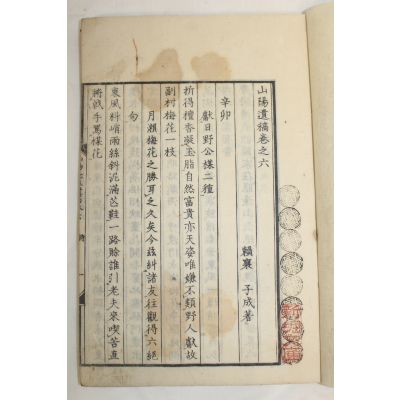 山陽遺稿卷之六
賴襄 子成著
辛卯
獻日野公櫻二種
折得檀香凝玉脂自然富貴亦天姿唯嫌不類野人獻故
副村梅花一枝
月瀨梅花之勝耳之久矣今茲糾諸友往觀得六絕
句
東風料峭雨絲斜泥滿芒鞋一路賒誰引老夫來喫苦直
將戟手罵梅花